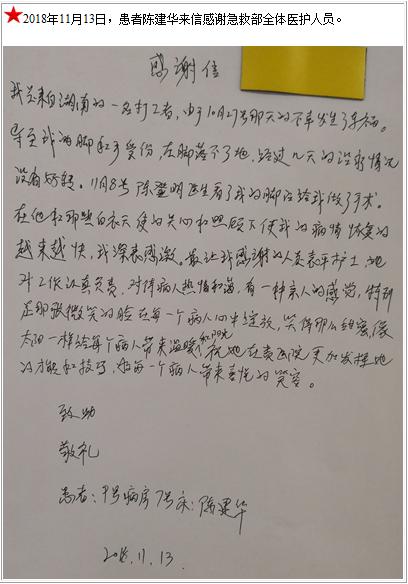 2018年11月13日，患者陈建华来信感谢急救部全体医护人员。
感谢信
我是来自湖南的一名打工者，由于10月27号那天的不幸发生了车祸。
导至我两脚和手受伤，左脚落不了地，经过几天的治疗情况
没有好转。11月8号陈医生看了我的脚后给我做了手术。
在他和那些白衣天使的关心和照顾下使我的病情恢复的
越来越快，我深表感激。最让我感谢的人是袁平护士，她
对工作认真负责，对待病人热情和蔼，有一种亲人的感觉，特别
是那张微笑的脸在每一个病人心中绽放，笑得那么甜蜜，像
太阳一样给每个病人带来温暖和阳光。祝她在贵医院更加发挥她
的才能和技巧，给每一个病人带来喜悦的笑容。
致助
敬礼
患者：9号病房7号床：陈建华
2018.11.13